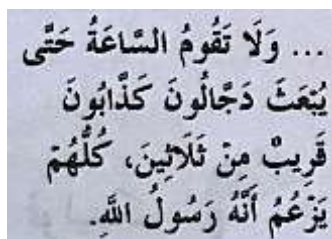 ... وَلَا تَقُومُ السَّاعَةُ حَتَّى
يُبْعَثَ دَجَّالُونَ كَذَّابُونَ
قَرِيبٌ مِنْ ثَلَاثِينَ، كُلُّهُمْ
يَزْعُمُ أَنَّهُ رَسُولُ اللَّهِ.